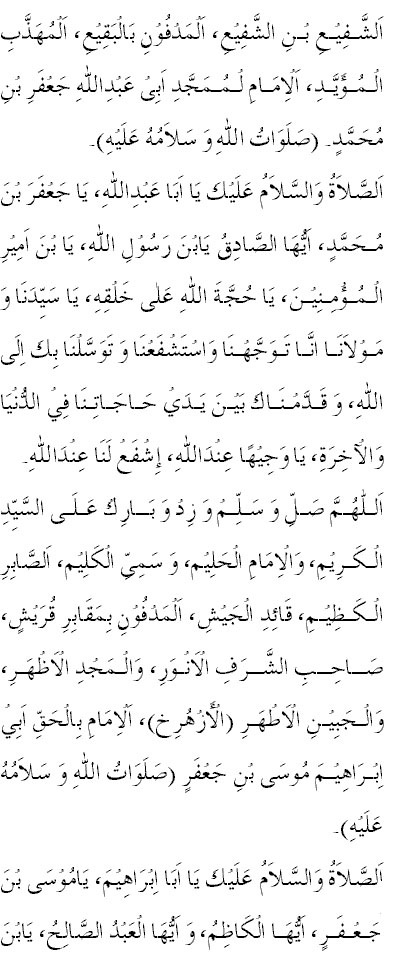 اَلشَّفِيْعِ بْـنِ الشَّفِيْعِ، اَلْمَدْفُوْنِ بَالْبَقِيْعِ، اَلْمُهَذَّبِ
الْـمُـؤَيَّـدِ، اَلْاِمَـامِ لْـمُـمَجَّدِ اَبِىْ عَبْدِاللهِ جَعْفَرِ بْنِ
مُحَمَّدٍ۔ (صَلَوَاتُ اللهِ وَ سَلَامُهُ عَلَيْهِ)۔
اَلصَّلَاةُ وَالسَّلَامُ عَلَيْكَ يَا اَبَا عَبْدِاللهِ، يَا جَعْفَرَ بْنَ
مُـحَمَّدٍ، اَيُّهَا الصَّادِقُ يَابْنَ رَسُوْلِ اللهِ، يَا بْنَ اَمِيْرِ
الْـمُـؤْمِنِيْـنَ، يَا حُجَّةَ اللهِ عَلٰى خَلْقِهٖ، يَا سَيِّدَنَا وَ
مَـوْلَانَــا انَّـا تَـوَجَّهْـنَا وَاسْتَشْفَعْنَا وَ تَوَسَّلْنَا بِكَ اِلَى
اللهِ، وَ قَـدَّمْنَـاكَ بَيْـنَ يَـدَيْ حَـاجَـاتِـنَا فِيْ الدُّنْيَا
وَالْاٰخِرَةِ، يَا وَجِيْهًا عِنْدَاللهِ، اِشْفَعْ لَنَا عِنْدَاللهِ۔
اَلـلّٰهُـمَّ صَـلِّ وَ سَـلِّـمْ وَ زِدْ وَ بَــارِكْ عَـلَـى السَّيِّدِ
الْـكَـرِيْمِ، وَالْاِمَامِ الْحَلِيْمِ، وَ سَمِيِّ الْكَلِيْمِ، اَلصَّابِرِ
الْـكَـظِيْـمِ، قَائِدِ الْجَيْشِ، اَلْمَدْفُوْنِ بِمَقَابِرِ قُرَيْشٍ،
صَــاحِــبِ الشَّــرَفِ الْاَنْـوَرِ، وَالْـمَـجْدِ الْاَظْهَـرِ،
وَالْـجَبِيْـنِ الْاَطْهَـرِ (الْأَزْهَرِخ)، اَلْاِمَامِ بِالْحَقِّ اَبِيْ
اِبْـرَاهِيْـمَ مُوسَى بْنِ جَعْفَرٍ (صَلَوَاتُ اللهِ وَ سَلَامُهُ
عَلَيْهِ)۔
اَلصَّلَاةُ وَالسَّلَامُ عَلَيْكَ يَا اَبَا اِبْرَاهِيْمَ، يَامُوْسَى بْنَ
جَـعْـفَـرٍ، اَيُّهَـا الْكَاظِمُ، وَ اَيُّهَا الْعَبْدُ الصَّالِحُ، يَابْنَ